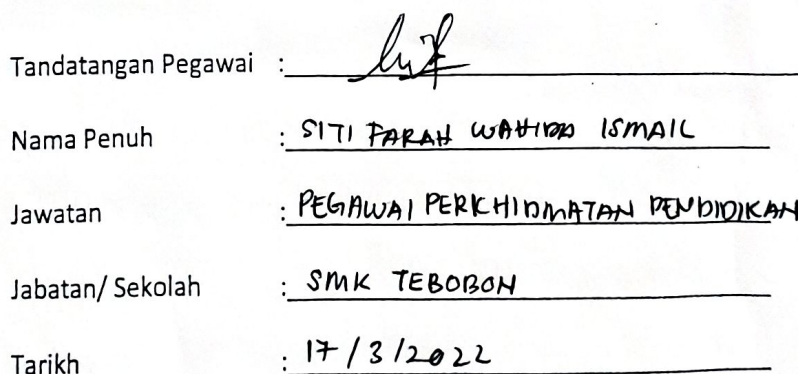 Tandatangan Pegawai :
Nama Penuh : SITI FARAH WAHIDA ISMAIL
Jawatan : PEGAWAI PERKHIDMATAN PENDIDIKAN
Jabatan/ Sekolah : SMK TEBOBON
Tarikh : 17/3/2022